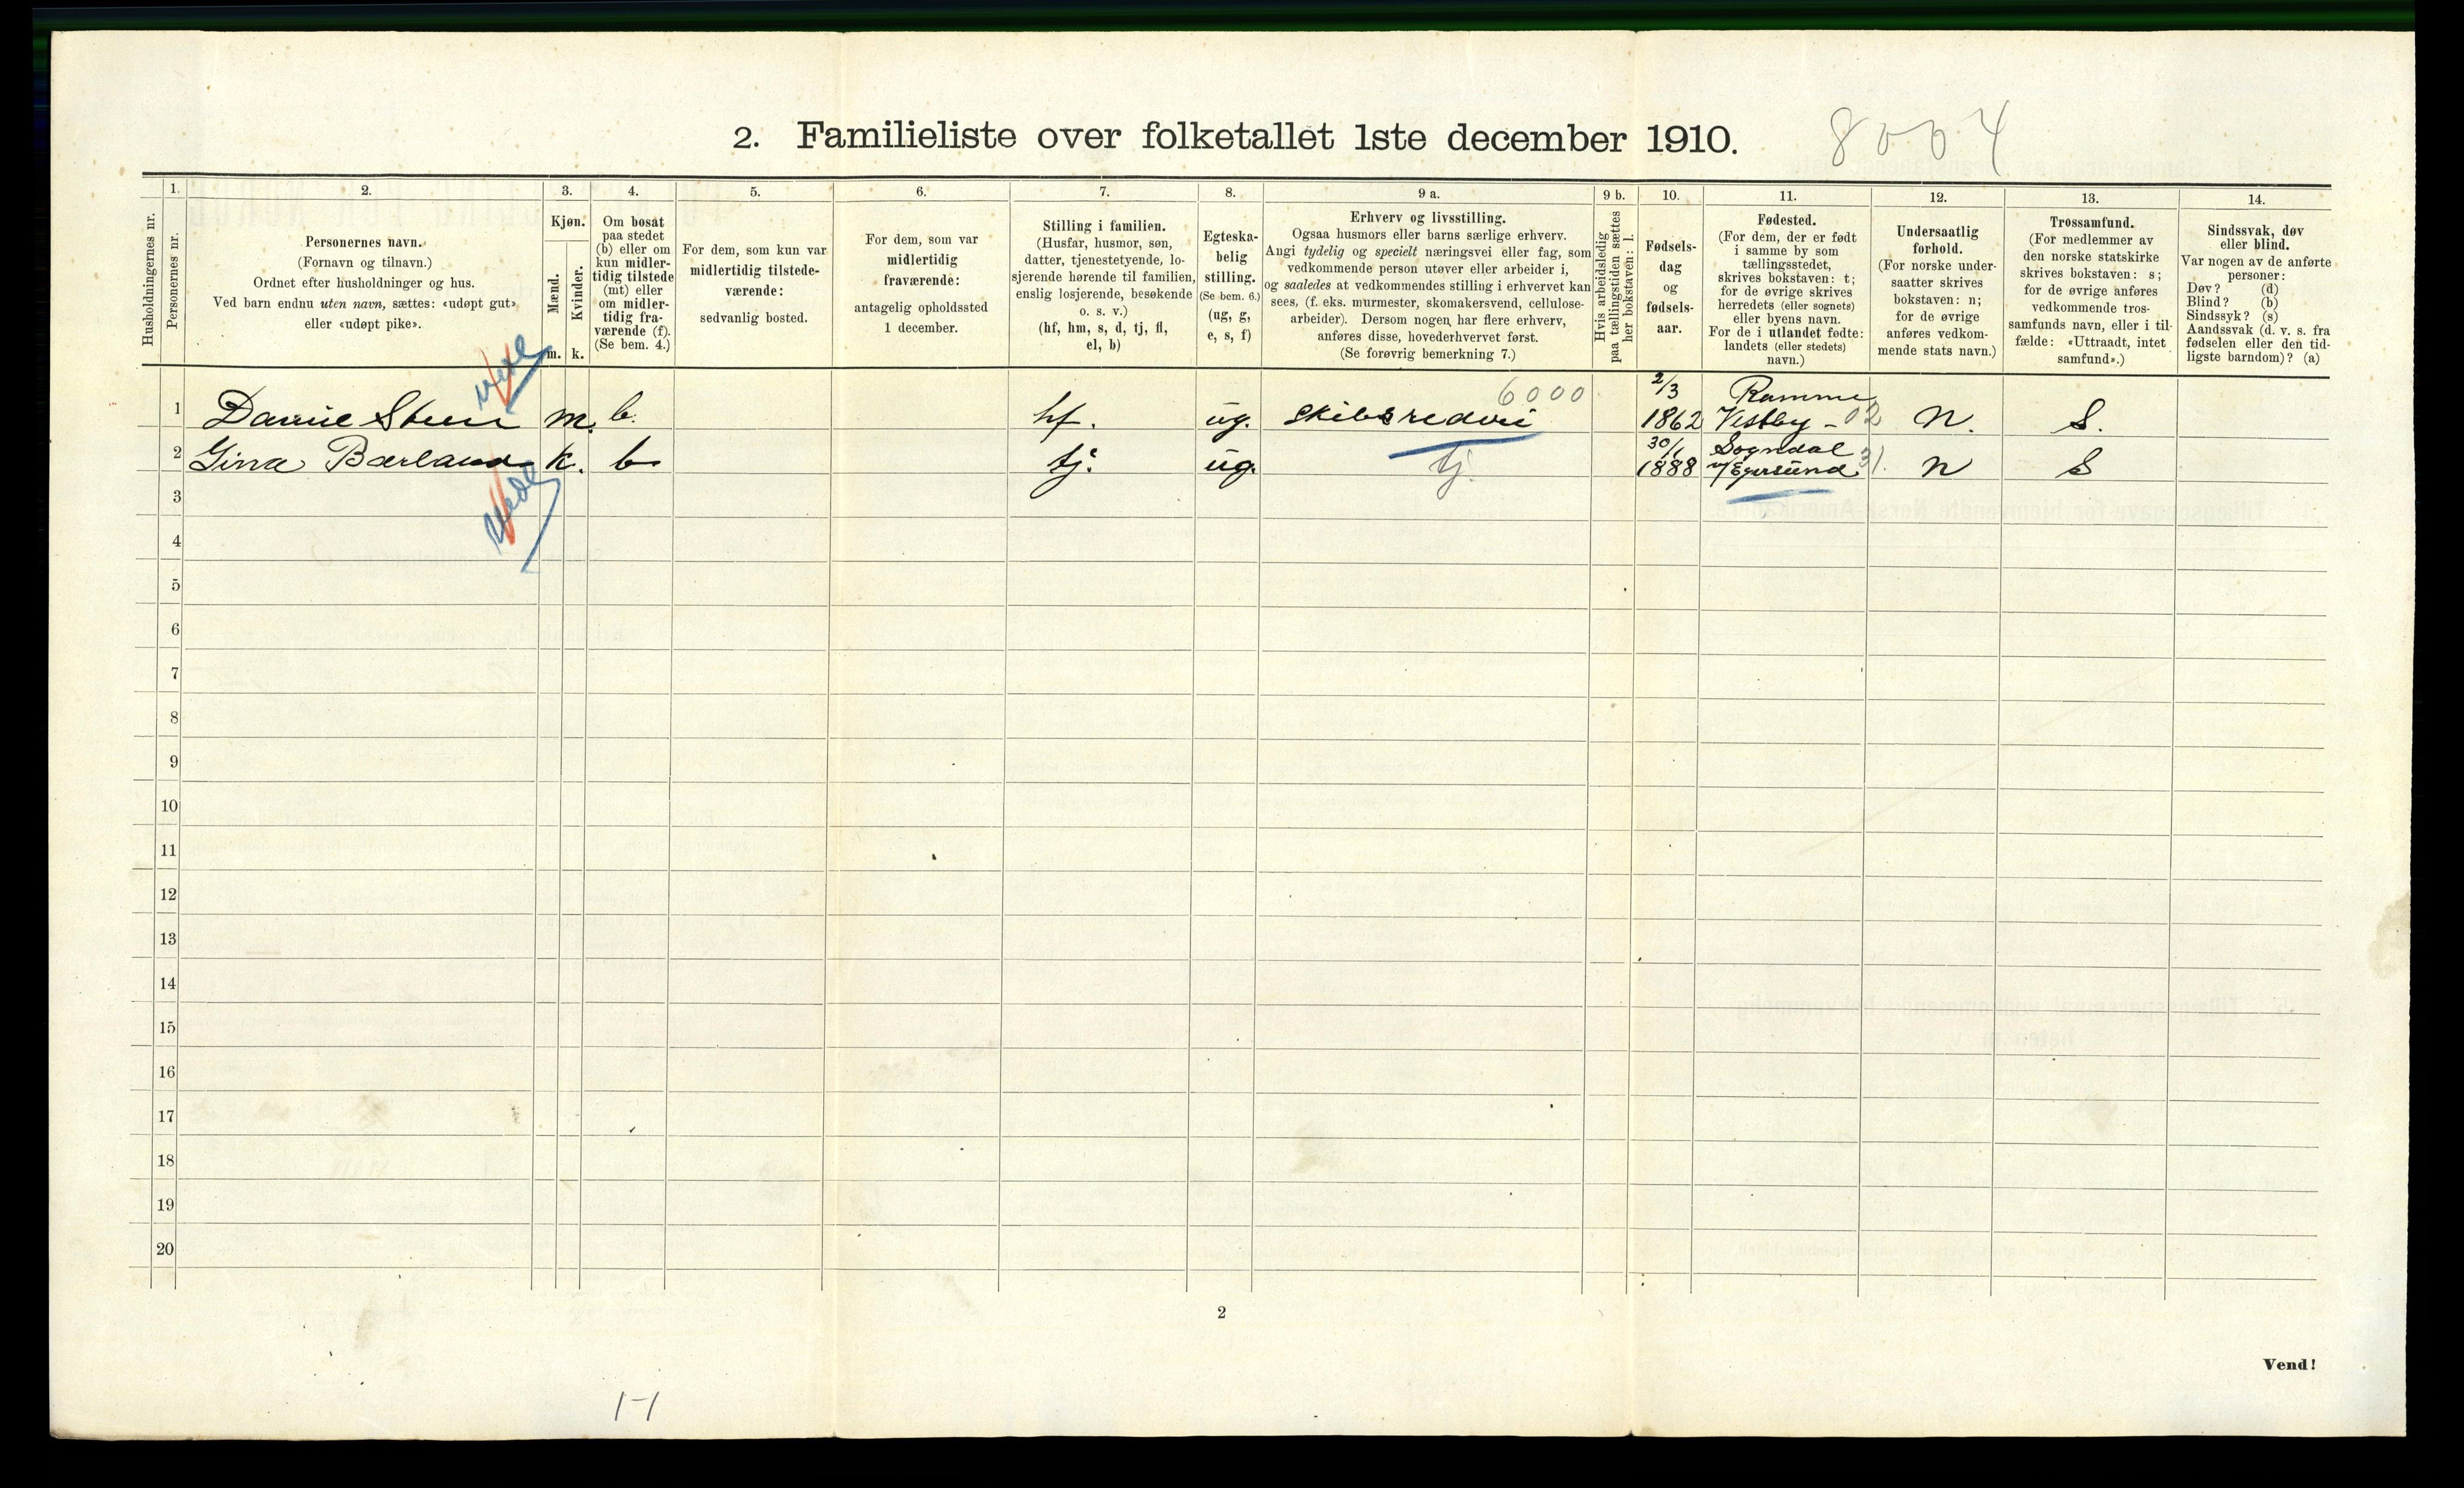 2. Familieliste over folketallet 1ste december 1910. 8004
1. 2. 3. 4. 5. 6. 7. 8. 9 a. 9 b. 10. 11. 12. 13. 14.
Husholdningernes nr.
Personernes nr.
Personernes navn.
(Fornavn og tilnavn.)
Ordnet efter husholdninger og hus.
Ved barn endnu uten navn, sættes: «udøpt gut»
eller «udøpt pike».
Kjøn.
Mænd.
Kvinder.
m. k.
Om bosat
paa stedet
(b) eller om
kun midler-
tidig tilstede
(mt) eller
om midler-
tidig fra-
værende (f).
(Se bem. 4.)
For dem, som kun var
midlertidig tilstede-
værende:
sedvanlig bosted.
For dem, som var
midlertidig
fraværende:
antagelig opholdssted
1 december.
Stilling i familien.
(Husfar, husmor, søn,
datter, tjenestetyende, lo-
sjerende hørende til familien,
enslig losjerende, besøkende
o. s. v.)
(hf, hm, s, d, tj, fl,
el, b)
Egteska-
belig
stilling.
(Se bem. 6.)
(ug, g,
e, s, f)
Erhverv og livsstilling.
Ogsaa husmors eller barns særlige erhverv.
Angi tydelig og specielt næringsvei eller fag, som
vedkommende person utøver eller arbeider i,
og saaledes at vedkommendes stilling i erhvervet kan
sees, (f. eks. murmester, skomakersvend, cellulose-
arbeider). Dersom nogen har flere erhverv,
anføres disse, hovederhvervet først.
(Se forøvrig bemerkning 7.)
Hvis arbeidsledig
paa tællingstiden sættes
her bokstaven: l.
Fødsels-
dag
og
fødsels-
aar.
Fødested.
(For dem, der er født
i samme by som
tællingsstedet,
skrives bokstaven: t;
for de øvrige skrives
herredets (eller sognets)
eller byens navn.
For de i utlandet fødte:
landets (eller stedets)
navn.)
Undersaatlig
forhold.
(For norske under-
saatter skrives
bokstaven: n;
for de øvrige
anføres vedkom-
mende stats navn.)
Trossamfund.
(For medlemmer av
den norske statskirke
skrives bokstaven: s;
for de øvrige anføres
vedkommende tros-
samfunds navn, eller i til-
fælde: «Uttraadt, intet
samfund».)
Sindssvak, døv
eller blind.
Var nogen av de anførte
personer:
Døv? (d)
Blind? (b)
Sindssyk? (s)
Aandssvak (d. v. s. fra
fødselen eller den tid-
ligste barndom)? (a)
6000 2/3 Ramme
1 Steen m. b. hf. ug. skibsrederi 1862 Vestby - 02 N. S.
30/1 Sogndal
2 Gina Bærland k. b tj. ug. tj. 1888 v/Egersund 31. N S
3
4
5
6
7
8
9
10
11
12
13
14
15
16
17
18
19
20
2
Vend!
1-1